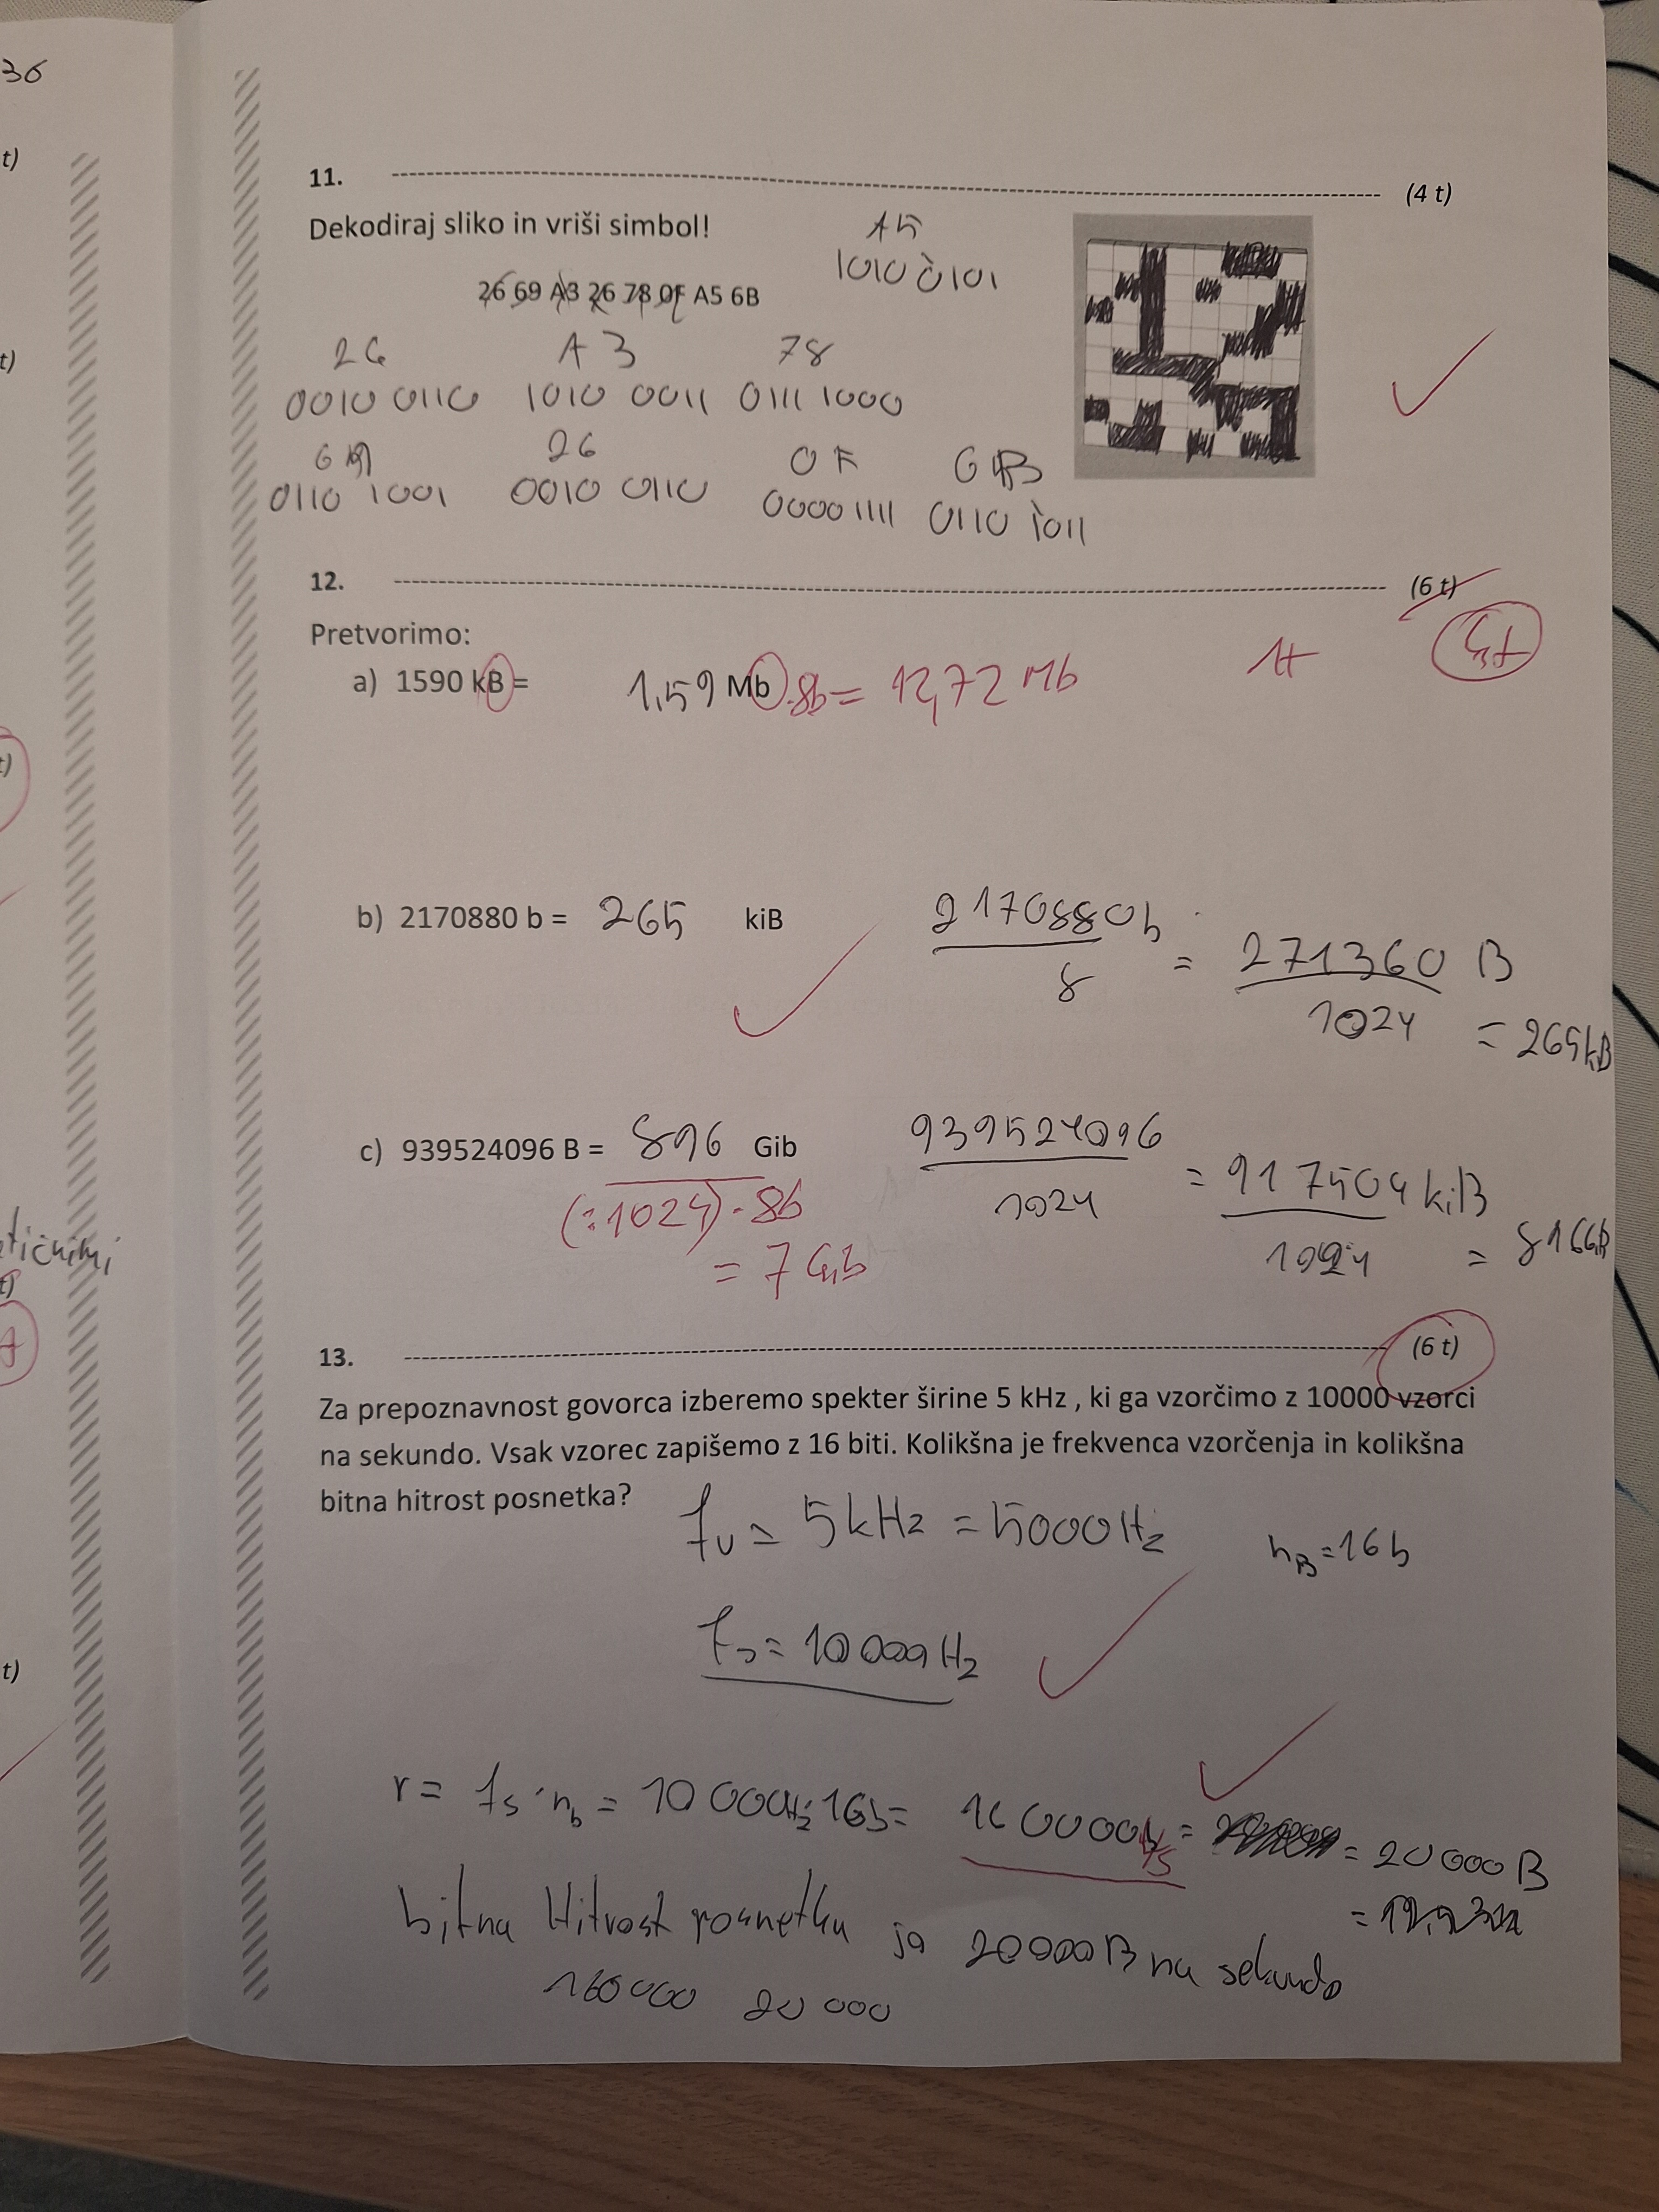 36
t)
t)
11. (4 t)
Dekodiraj sliko in vriši simbol!
A5
1010 0101
26 69 A3 26 78 0F A5 6B
26 A3 78
0010 0110 1010 0011 0111 1000
26 0F 6B
0110 1001 0010 0110 0000 1111 0110 1011
12. (6 t)
Pretvorimo:
1t
a) 1590 kB = 1,59 Mb .8b = 12,72 Mb
t)
b) 2170880 b = 265 kiB
2170880 b
8
= 271360 B
1024
= 265 kB
c) 939524096 B = 896 Gib
(:1024) . 8b
= 7 Gib
939524096
1024
= 917504 kiB
1024
=
t)
13. (6 t)
Za prepoznavnost govorca izberemo spekter širine 5 kHz , ki ga vzorčimo z 10000 vzorci
na sekundo. Vsak vzorec zapišemo z 16 biti. Kolikšna je frekvenca vzorčenja in kolikšna
bitna hitrost posnetka?
fv = 5 kHz = 5000 Hz
nB = 16 b
fs = 10 000 Hz
t)
r = fs · nb = 10 000 Hz · 16b = 160000 b/s = = 20 000 B
bitna Hitrost posnetka je 20000 B na sekundo
160 000 20 000